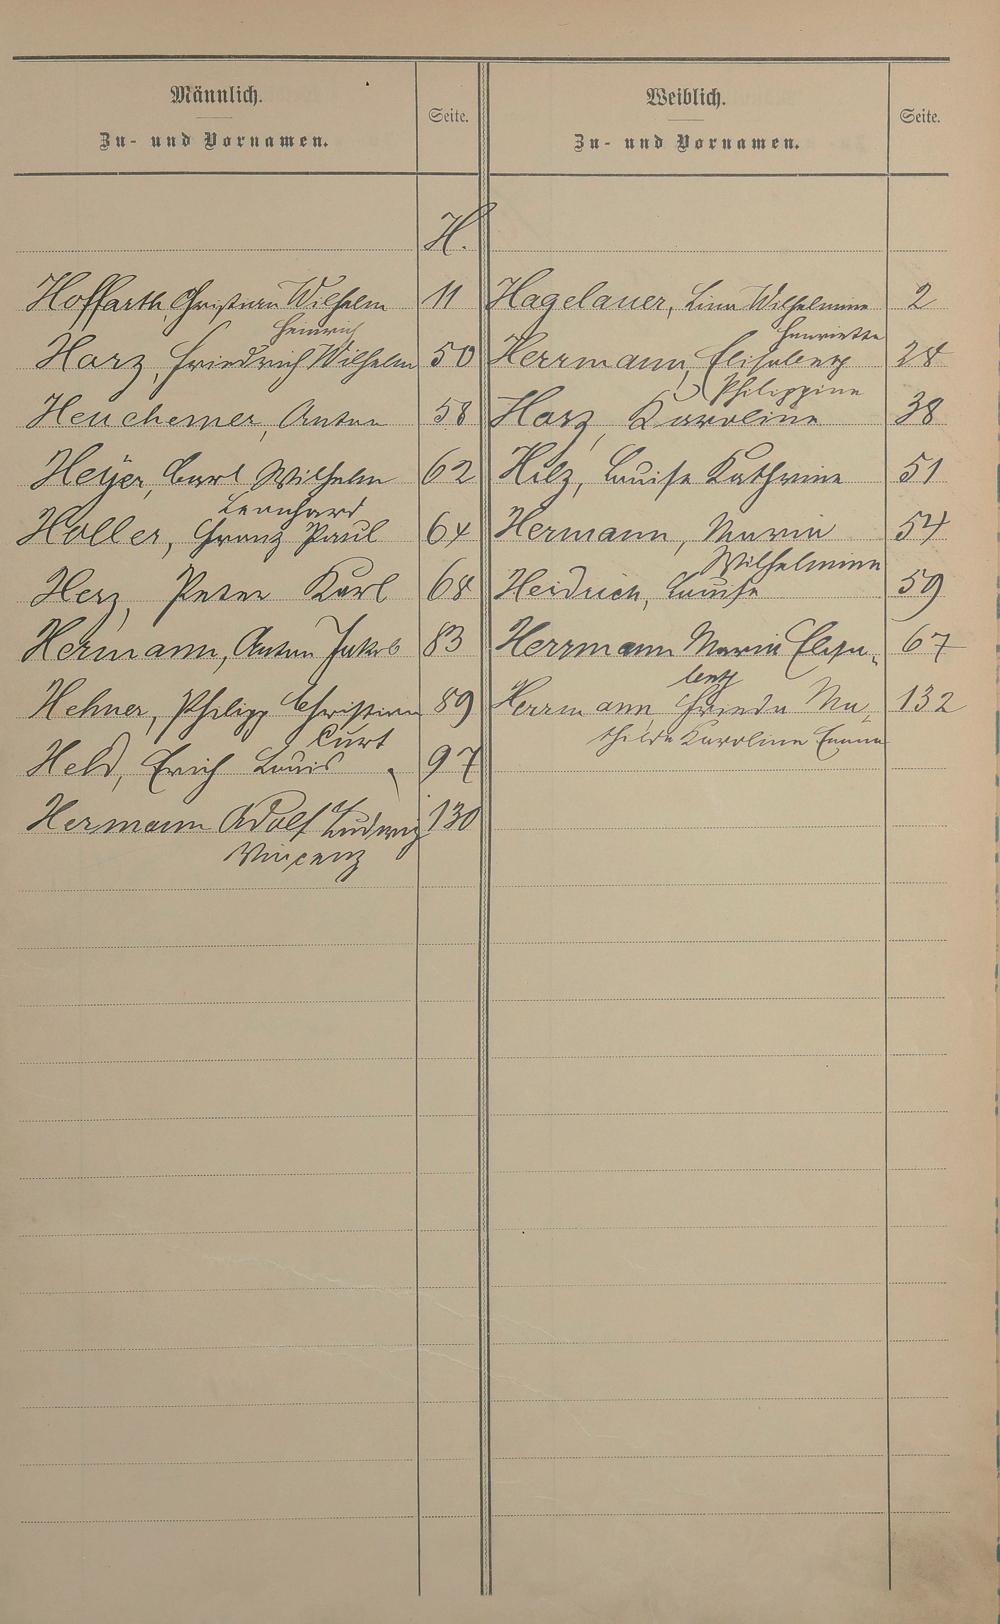 Männlich.
Zu- und Vornamen.
Seite.
Weiblich.
Zu- und Vornamen.
Seite.
H.
Hoffarth, Christian Wilhelm 11
Heinrich
Harz, Friedrich Wilhelm 50
Heuchemer, Anton 58
Heyer, Carl Wilhelm 62
Leonhard
Holler, Franz Paul 64
Herz, Peter Karl 68
Hermann, Anton Jakob 83
Hehner, Philipp Christian 89
Curt
Held, Erich Louis 97
Hermann Adolf Ludwig 130
Vincenz
Hagelauer, Lina Wilhelmine 2
Henriette
Herrmann, Elisabeth 28
Philippine
Harz, Karoline 38
Hilz, Louise Kathrine 51
Hermann, Maria 54
Wilhelmine
Heidrich, Louise 59
Herrmann Maria Elisa- 67
beth
Herrmann, Frieda Ma- 132
thilde Karoline Emma